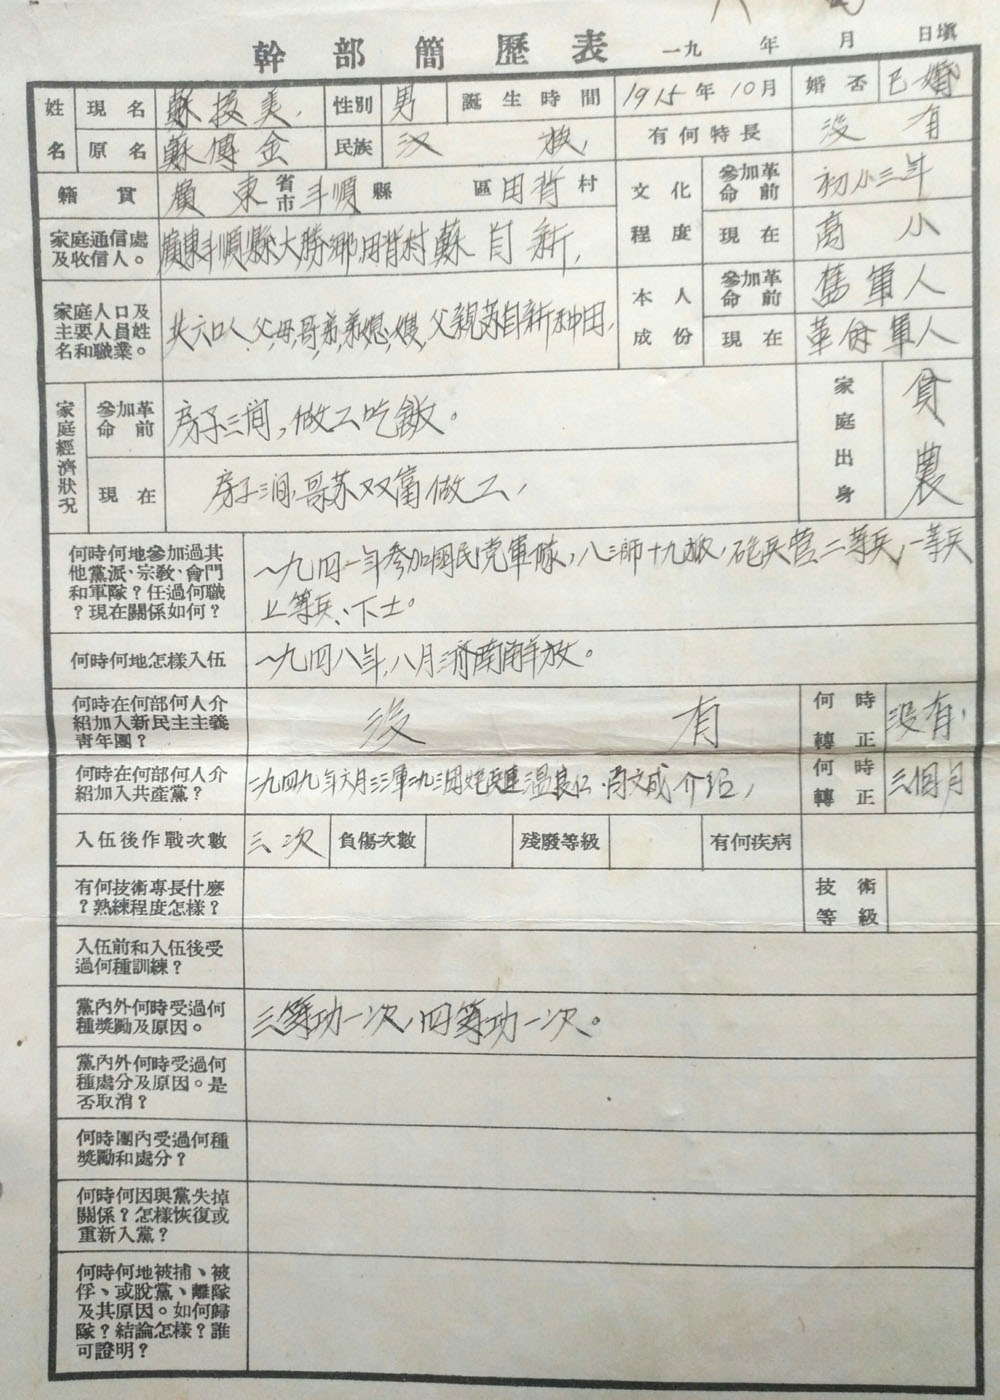 幹部簡歷表 一九 年 月 日填
姓名 現名 蘇接美 性別 男 誕生時間 1915年10月 婚否 已婚
原名 蘇傅金 民族 汉族 有何特長 没有
籍貫 廣東省市丰順縣 區田背村 文化程度 參加革命前 初小三年
家庭通信處及收信人。 廣東丰順縣大勝鄉田背村蘇自新, 現在 高小
家庭人口及主要人員姓名和職業。 共六口人,父,母,哥,弟,弟媳,嫂,父親苏自新种田, 本人成份 參加革命前 舊軍人
現在 革命軍人
家庭經濟狀況 參加革命前 房子三間,做工吃飯。 家庭出身 貧農
現在 房子三间,哥苏双富做工,
何時何地參加過其
他黨派、宗教、會門
和軍隊?任過何職
?現在關係如何?
一九四一年参加國民党軍隊,八三師十九旅,砲兵营二等兵,一等兵
上等兵、下士。
何時何地怎樣入伍 一九四八年,八月濟南解放。
何時在何部何人介
紹加入新民主主義
靑年團?
没有 何時轉正 没有,
何時在何部何人介
紹加入共產黨?
一九四九年六月三三軍二九三团炮兵連温良仁、周文成介绍, 何時轉正 三個月
入伍後作戰次數 三次 負傷次數 殘廢等級 有何疾病
有何技術專長什麽
?熟練程度怎樣?
技術等級
入伍前和入伍後受
過何種訓練?
黨內外何時受過何
種獎勵及原因。
三等功一次,四等功一次。
黨內外何時受過何
種處分及原因。是
否取消?
何時團內受過何種
獎勵和處分?
何時何因與黨失掉
關係?怎樣恢復或
重新入黨?
何時何地被捕、被
俘、或脫黨、離隊
及其原因。如何歸
隊?結論怎樣?誰
可證明?